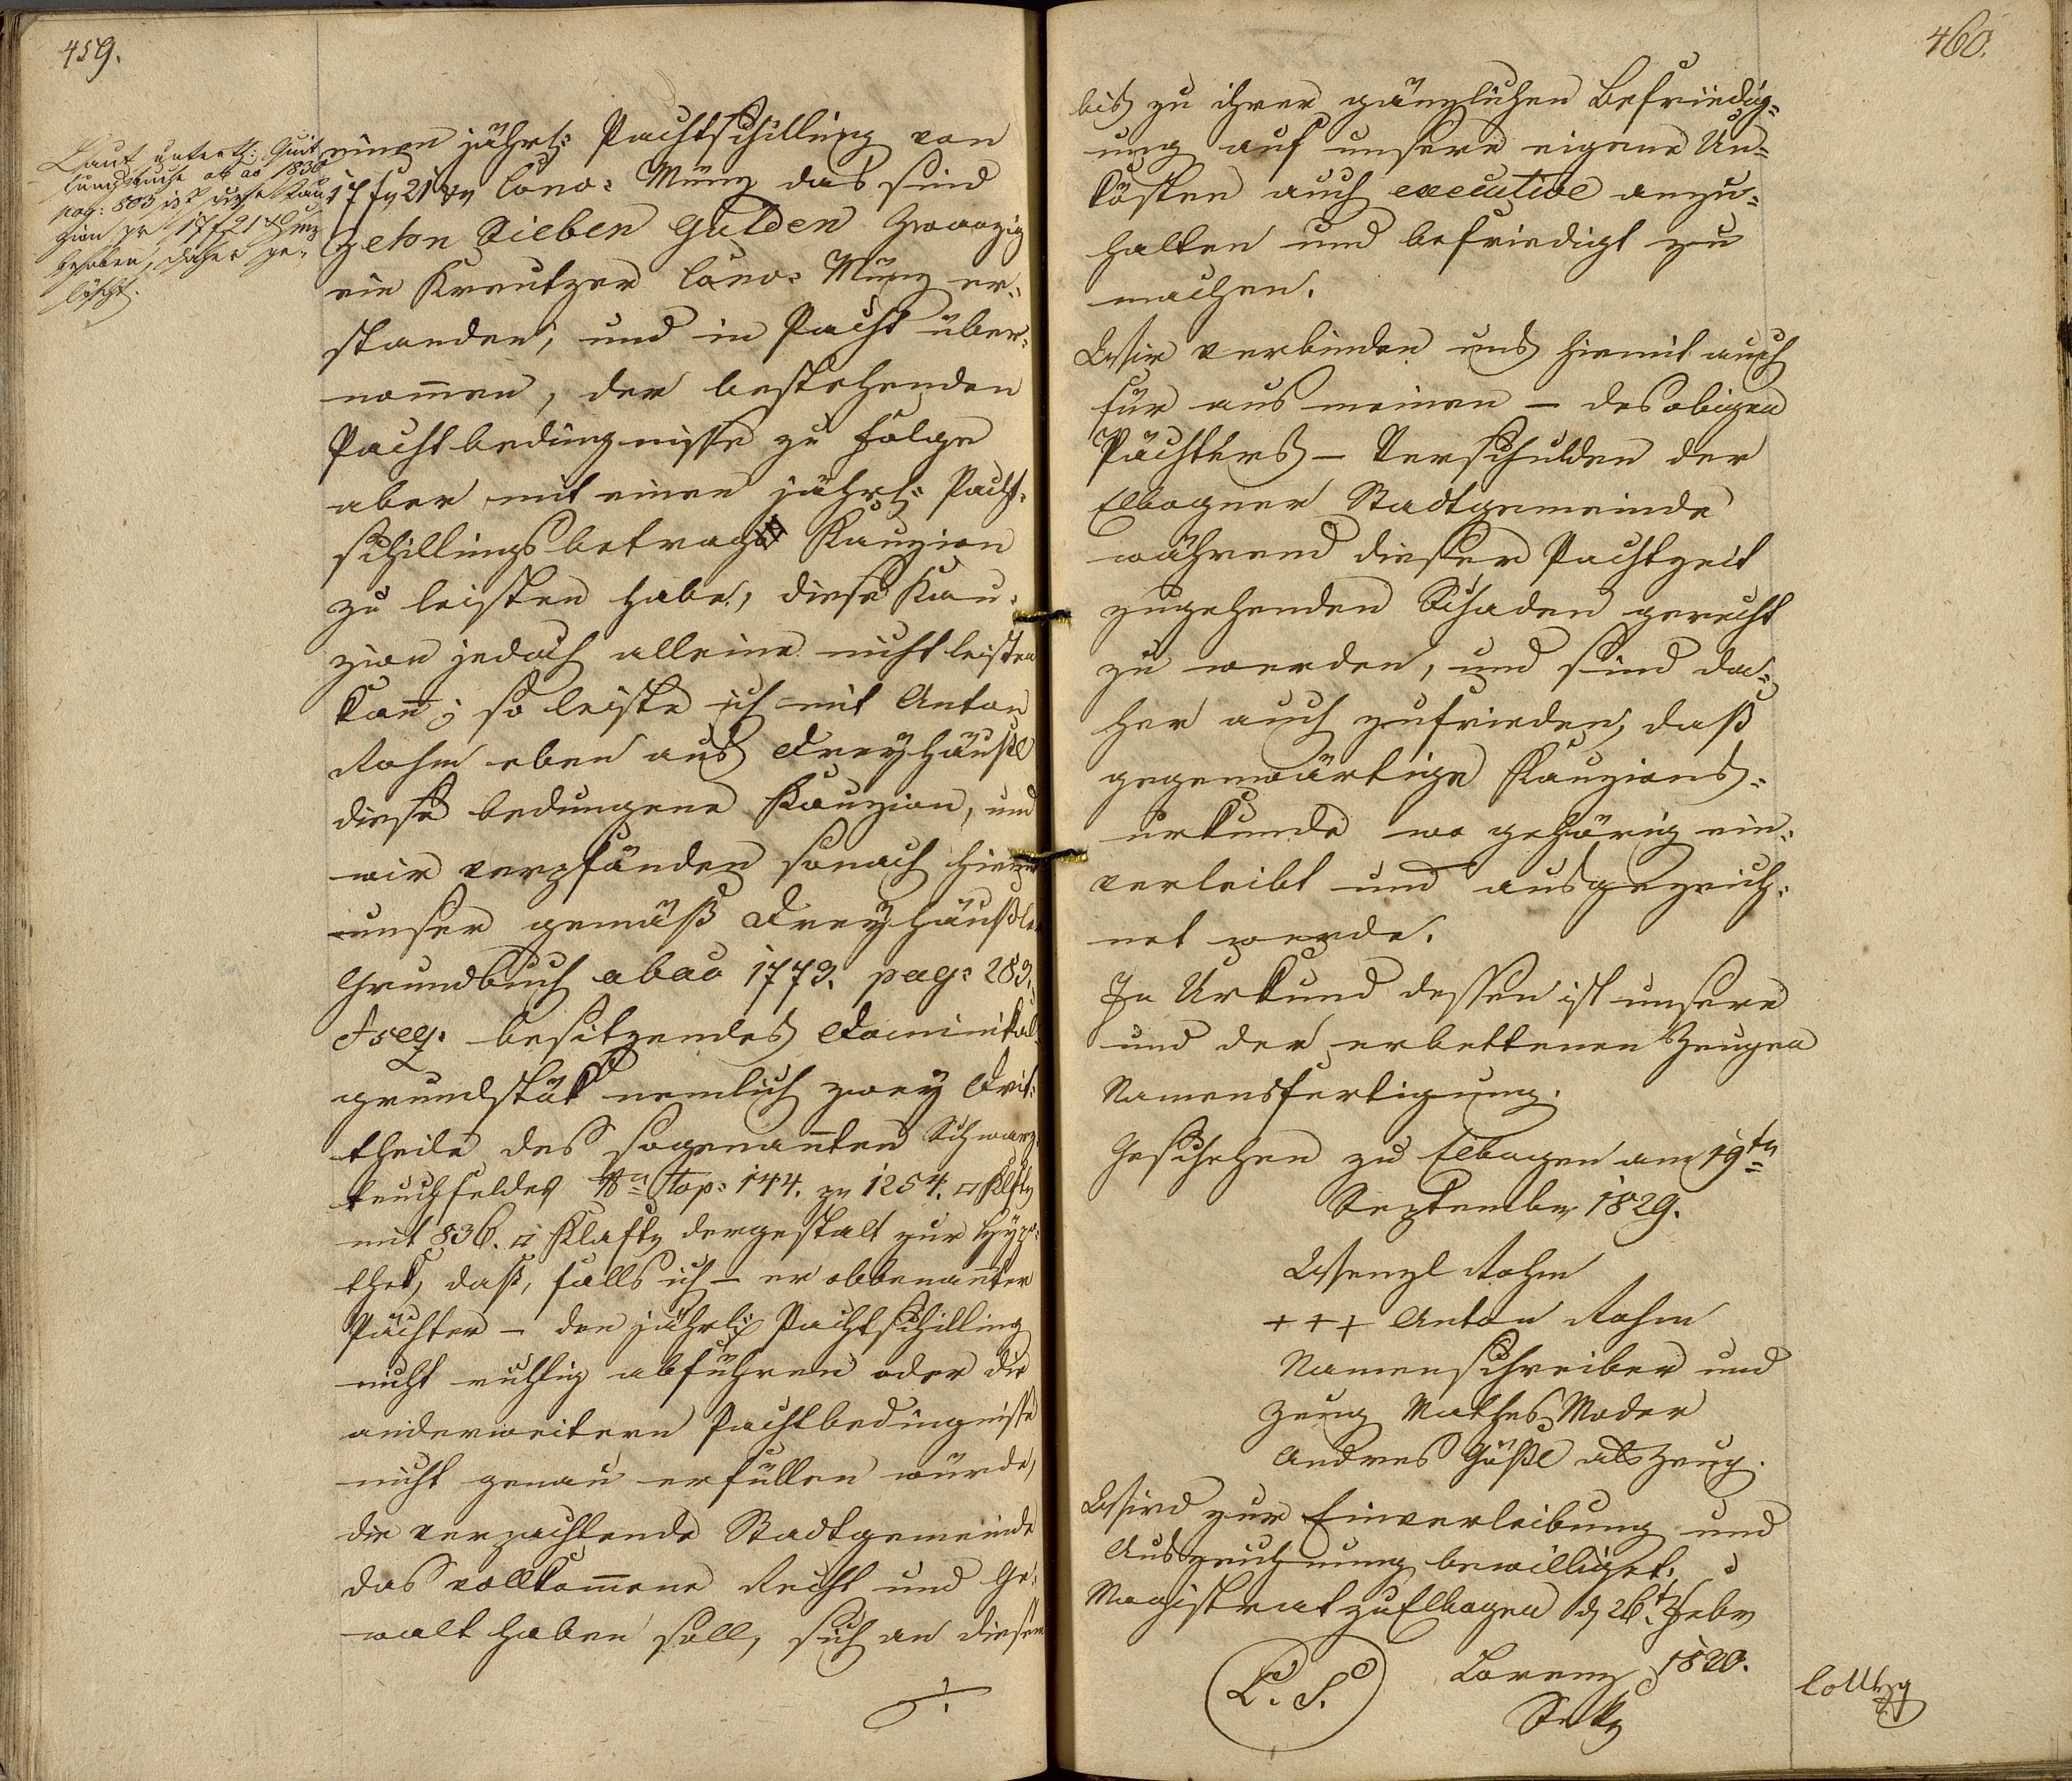 459.
Laut unterth: Quit
tungsbuche ab ao 1830
pag: 803 ist diese Kau
zion pr 17 f 21 x Münz
behoben, daher ge-
löscht.
einen jährl: Pachtschilling von
17 f 21 xr Conv: Münz das sind
zehn Sieben Gulden zwanzig
ein Kreutzer Conv: Münz er-
standen, und in Pacht über-
nommen, der bestehenden
Pachtbedingnisse zu folge
aber mit einen jährl: Pacht-
schillingsbetrag Kauzion
zu leisten habe, diese Kau-
zion jedoch alleine nicht leisten
kann; so leiste ich mit Anton
Rohm eben aus Dreyhäusl
diese bedungene Kauzion, und
wir verpfänden sonach hiemit
unser gemäß Dreyhäußler
Grundbuch abao 1773. pag: 283.
& seq: besitzendes Dominikal-
grundstük nemlich zwey Drit-
theile des sogenannten Schwarz-
teuchfeldes No Top: 144. zu 1254. □ Klftr
mit 836. □ Klaftr dergestalt zur Hypo-
thek, daß, falls ich – er obbenannter
Pächter – den jährl: Pachtschilling
nicht richtig abführen oder die
anderweitern Pachtbedingnisse
nicht genau erfüllen würde,
die verpachtende Stadtgemeinde
das vollkommene Recht und Ge-
walt haben soll, sich an diesem
./.
460.
bis zu ihrer gänzlichen Befriedig-
ung auf unsere eigene Un-
kösten auch executive anzu-
halten und befriedigt zu
machen.
Wir verbinden uns hiemit auch
für aus meinen – des obigen
Pächters – Verschulden der
Elbogner Stadtgemeinde
während dieser Pachtzeit
zugehenden Schaden gerecht
zu werden, und sind da-
her auch zufrieden, daß
gegenwärtige Kauzions-
urkunde wo gehörig ein-
verleibt und ausgezeich-
net werde.
In Urkund dessen ist unsere
und der erbettenen Zeugen
Namensfertigung.
Geschehen zu Elbogen am 19tn
September 1829.
Wenzl Rohm
+++ Anton Rohm
Namenschreiber und
Zeug Mathes Moder
Andres Gößl als Zeug.
Wird zur Einverleibung und
Auszeichnung bewilliget.
Magistrat zu Elbogen d 26t Febr
1820.
L. S.
Lorenz
Sekr
Collzg